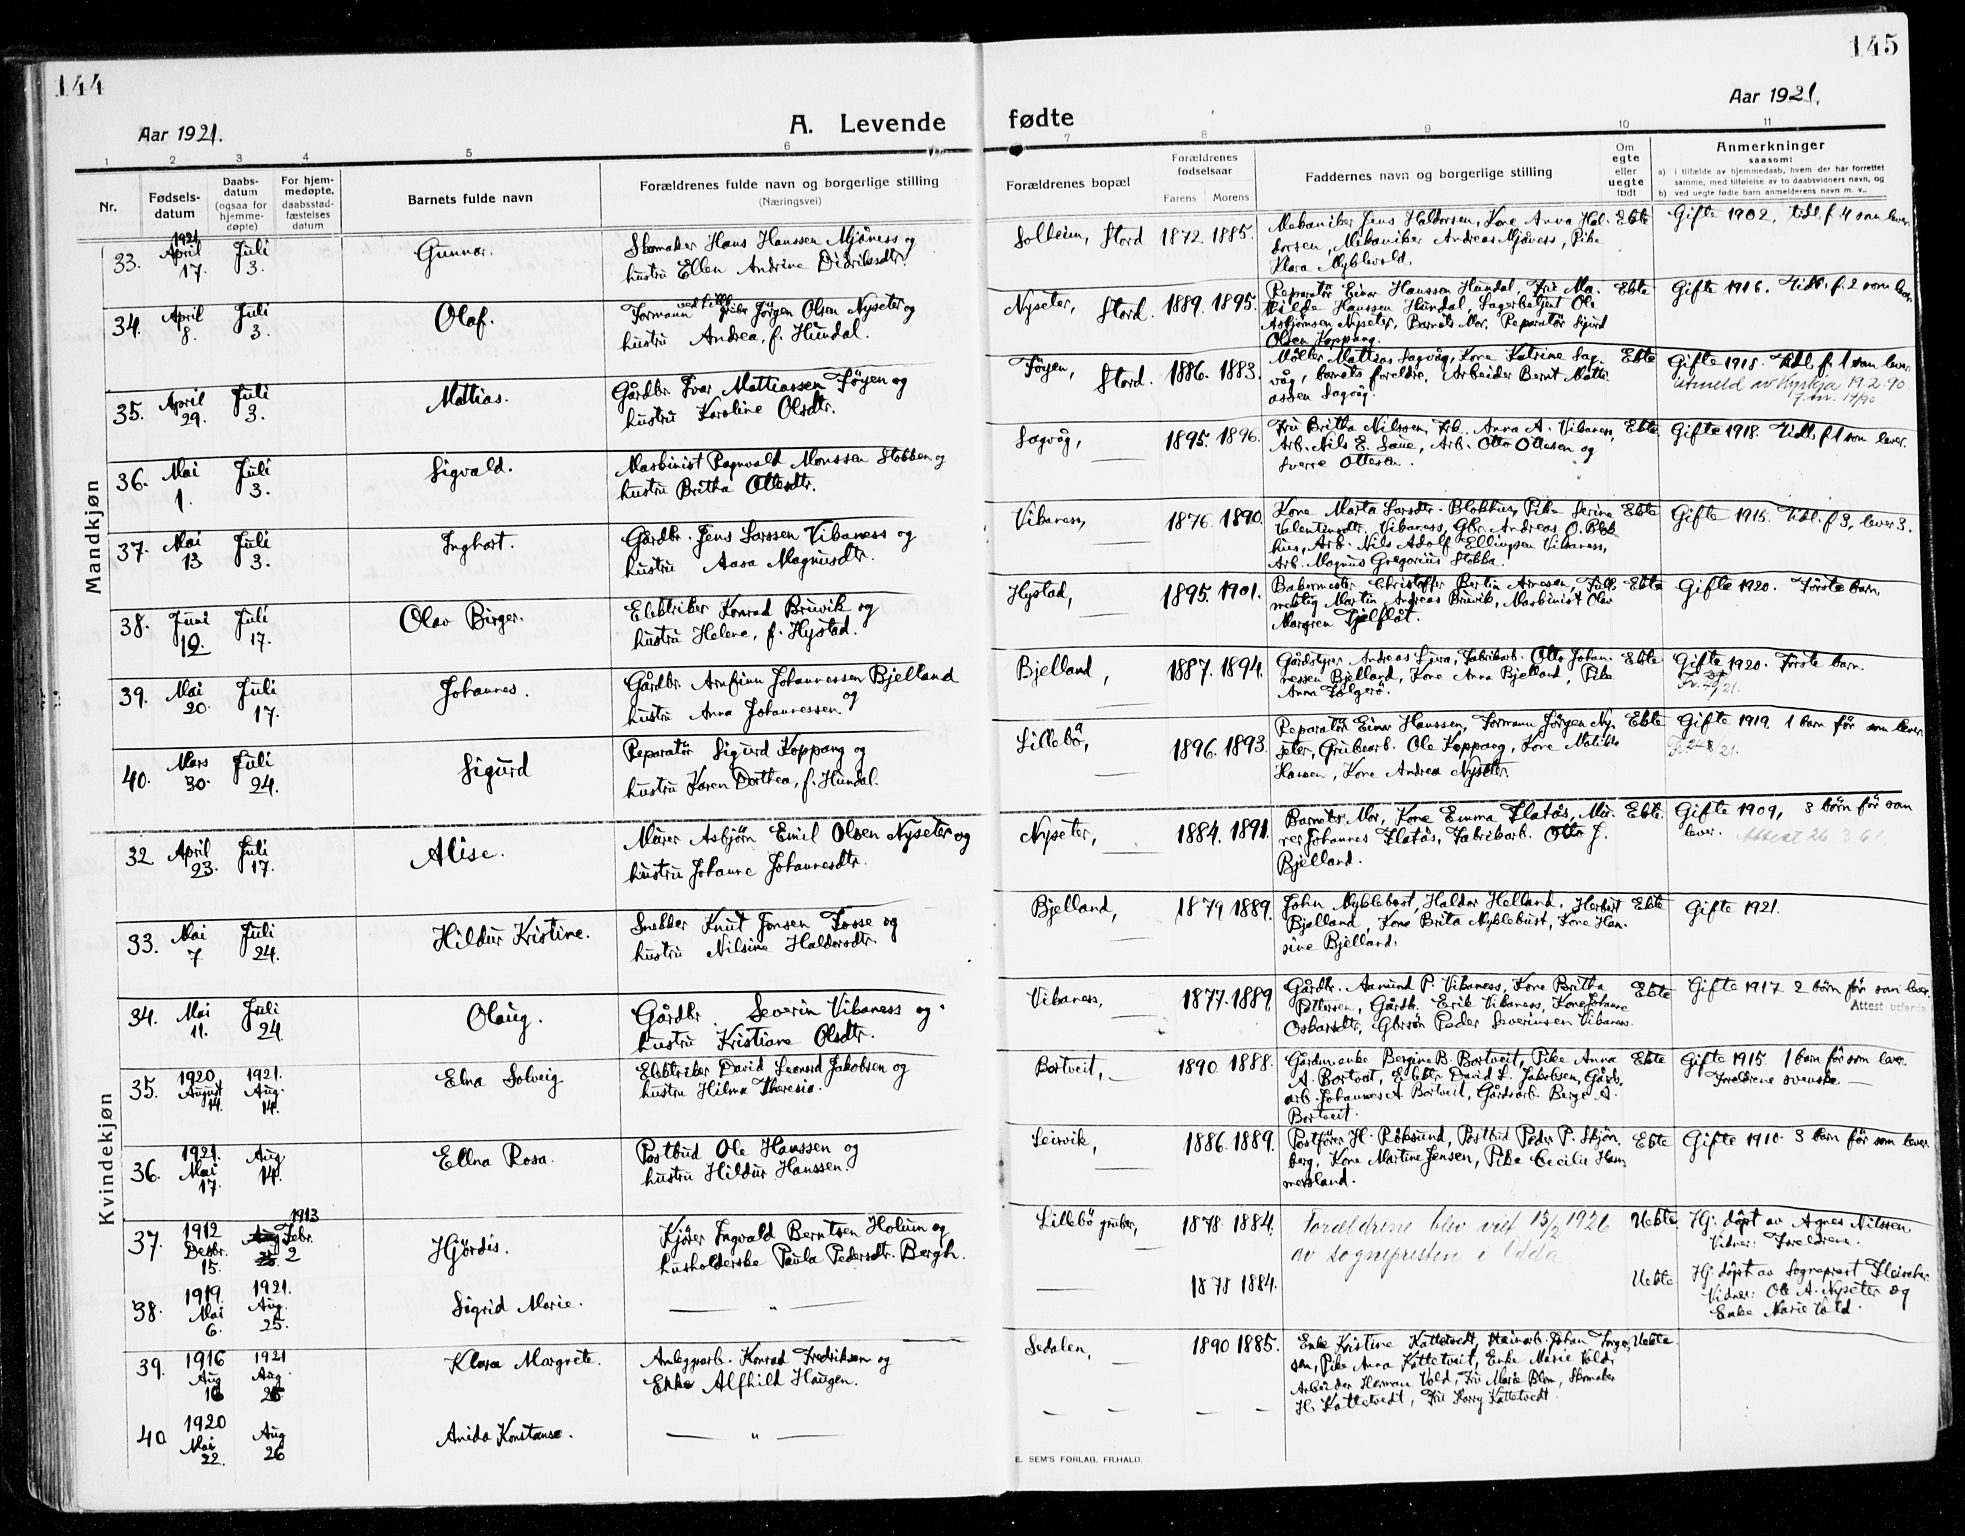 144
145
Aar 1921.
A. Levende
fødte
Aar 1921.
1 2 3 4 5 6 7 8 9 10 11
Nr.
Fødsels-
datum
Daabs-
datum
(ogsaa for
hjemme-
døpte)
For hjem-
medøpte,
daabsstad-
fæstelses
datum
Barnets fulde navn
Forældrenes fulde navn og borgerlige stilling
(Næringsvei)
Forældrenes bopæl
Forældrenes
fødselsaar
Farens Morens
Faddernes navn og borgerlige stilling
Om
egte
eller
uegte
født
Anmerkninger
saasom:
a) i tilfælde av hjemmedaab, hvem der har forrettet
samme, med tilføielse av to daabsvidners navn, og
b) ved uegte fødte barn anmelderens navn m. v..
Mandkjøn
33. 1921 April 17. Juli 3. Gunnar.
Skomaker Hans Hanssen Mjåness og
hustru Ellen Andrine Didriksdtr.
Solheim, Stord 1872. 1885.
Mekaniker Jens Haldorsen, Kone Anna Hal-
dorsen, Mekaniker Andreas Mjåness, Pike
Klara Myklevold.
Ekte
Gifte 1902, tidl. f. 4 som lever.
34. April 8. Juli 3. Olaf.
Formann ved Lillebø grube Jörgen Olsen Nyseter og
hustru Andrea, f. Hundal.
Nyseter, Stord. 1889. 1895.
Reparatör Einar Hanssen Hundal, Fru Ma-
tilde Hanssen Hundal, Lagerbetjent Ole
Asbjørnsen Nyseter, Barnets Mor, Reparatör Sigurd
Olsen Koppang.
Ekte
Gifte 1916. Tidl. f. 2 som lever.
35. April 29. Juli 3. Mattias.
Gårdbr. Ivar Mattiassen Föyen og
hustru Karoline Olsdtr.
Föyen, Stord. 1886. 1883.
Möller Mattias Sagvåg, Kone Katrine Sag-
våg, barnets foreldre, Arbeider Bernt Matti-
assen Sagvåg.
Ekte
Gifte 1918. Tidl. f. 1 som lever.
Utmeld av kyrkja 19.2.90
36. Mai 1. Juli 3. Sigvald.
Maskinist Ragnvald Monssen Stokken og
hustru Britha Ottesdtr.
Sagvåg, 1895. 1896.
Fru Britha Nilssen, Frk. Anna A. Vikaness,
Arb. Nils E. Saue, Arb. Otto Ottesen og
Sverre Ottesen.
Ekte
Gifte 1918. Tidl. f. 1 som lever.
37. Mai 13 Juli 3. Inghart.
Gårdbr. Jens Larssen Vikaness og
hustru Aasa Magnusdtr.
Vikaness, 1876. 1890.
Kone Marta Larsdtr. Blokhus, Pike Serine
Valentinsdtr. Vikaness, Gbr. Andreas O. Blok-
hus, Arb. Nils Adolf Ellingsen Vikaness,
Arb. Magnus Gregorius Stokka.
Ekte
Gifte 1915. Tidl. f. 3, lever 3.
38. Juni 10. Juli 17. Olav Birger.
Elektriker Konrad Bruvik og
hustru Helene, f. Hystad.
Hystad, 1895. 1901.
Bakermester Christoffer Bertin Arnesen, Full-
mektig Martin Andreas Bruvik, Maskinist Olav
Margren Tjelflåt.
Ekte
Gifte 1920. Förste barn.
39. Mai 20. Juli 17. Johannes.
Gårdbr. Arnfinn Johannessen Bjelland
og
hustru Anna Johannessen
Bjelland, 1887. 1894.
Gårdstyrer Andreas Ljera, Fabrikarb. Otto Johan-
nessen Bjelland, Kone Anna Bjelland, Pike
Anna Folgerø.
Ekte
Gifte 1920. Förste barn.
40. Mars 30. Juli 24. Sigurd
Reparatör Sigurd Koppang og
hustru Karen Dorthea, f. Hundal.
Lillebö, 1896. 1893.
Reparatör Einar Hanssen, Formann Jörgen Ny-
seter, Grubearb. Ole Koppang, Kone Matilde
Hansen, Kone Andrea Nyseter.
Ekte
Gifte 1919. 1 barn før som lever.
Kvindekjøn
32 April 23. Juli 17. Alise.
Murer Asbjörn Emil Olsen Nyseter og
hustru Johanne Johannesdtr.
Nyseter, 1884. 1891.
Barnets Mor, Kone Emma Flatås, Mu-
rer Johannes Flatås, Fabrikarb. Otto J.
Bjelland.
Ekte.
Gifte 1909, 3 börn för som
lever. Attest 26 3 61
33. Mai 7 Juli 24. Hildur Kristine.
Snekker Knut Jonsen Fosse og
hustru Nilsine Haldorsdtr.
Bjelland, 1879 1889.
John Myklebost, Haldor Helland, Herlaut
Bjelland, Kone Brita Myklebust, Kone Han-
sine Bjelland.
Ekte
Gifte 1921.
34. Mai 11. Juli 24. Olaug.
Gårdbr. Severin Vikaness og
hustru Kristiane Olsdtr.
Vikaness, 1877. 1889
Gårdbr. Aamund P. Vikaness, Kone Britha
Pettersen, Gårdb. Erik Vikaness, Kone Johanne
Oskarsdtr, Gbrsön Peder Severinsen Vikaness.
Ekte
Gifte 1917 2 börn för som lever.
Attest utferda
35. 1920. August 14. 1921. Aug. 14. Elna Solveig
Elektriker David Leonard Jakobsen og
hustru Hilma Theresia.
Bortveit, 1890 1888.
Gårdm.enke Bergine B. Bortveit, Pike Anna
A. Bortveit, Elektr. David L. Jakobsen, Gårds-
arb. Johannes A. Bortveit, Gårdsarb. Berge A.
Bortveit.
Ekte
Gifte 1915. 1 barn før som lever.
Foreldrene svenske.
36. 1921. Mai 17. Aug. 14. Ellna Rosa.
Postbud Ole Hanssen og
hustru Hildur Hanssen.
Leirvik, 1886. 1889.
Postförer H. Röksund, Postbud Peder P. Skjön-
berg, Kone Martine Jensen, Pike Cecilie Ham-
mersland.
Ekte
Gifte 1910. 3 barn før som lever.
37. 1912 Desbr. 15. 1913 Febr. 2 Hjördis.
Kjörer Ingvald Berntsen Holum og
husholderske Paula Pedersdtr. Bergh.
Lillebö gruber, 1878 1884.
Forældrene blev viet 13/2 1926
av sognepresten i Odda
Uekte
Hj. döpt av Agnes Nilssen.
Vidner: Foreldrene.
38. 1919. Mai 6. 1921. Aug. 25. Sigrid Marie.
— " —
1878 1884.
Uekte
Hj. döpt av Sogneprest Fleischer.
Vidner: Ole A. Nyseter og
Enke Marie Vold.
39. 1916 Aug 16 1921 Aug. 26 Klara Margrete.
Anlegsarb. Konrad Fredriksen og
Enke Alfhild Haugen.
Sedalen, 1890 1885.
Enke Kristine Kattetvedt, Stenarb. Johan Torger-
sen, Pike Anna Kattetveit, Enke Marie Vold,
Arbeider Herman Vold, Fru Marie Blom, Skomaker
H. Kattetvedt, Fru Borry Kattetvedt.
Uekte
40 1920 Mai 22. Aug 26 Anida Konstanse.
— " —
E. SEM'S FORLAG, FR.HALD.